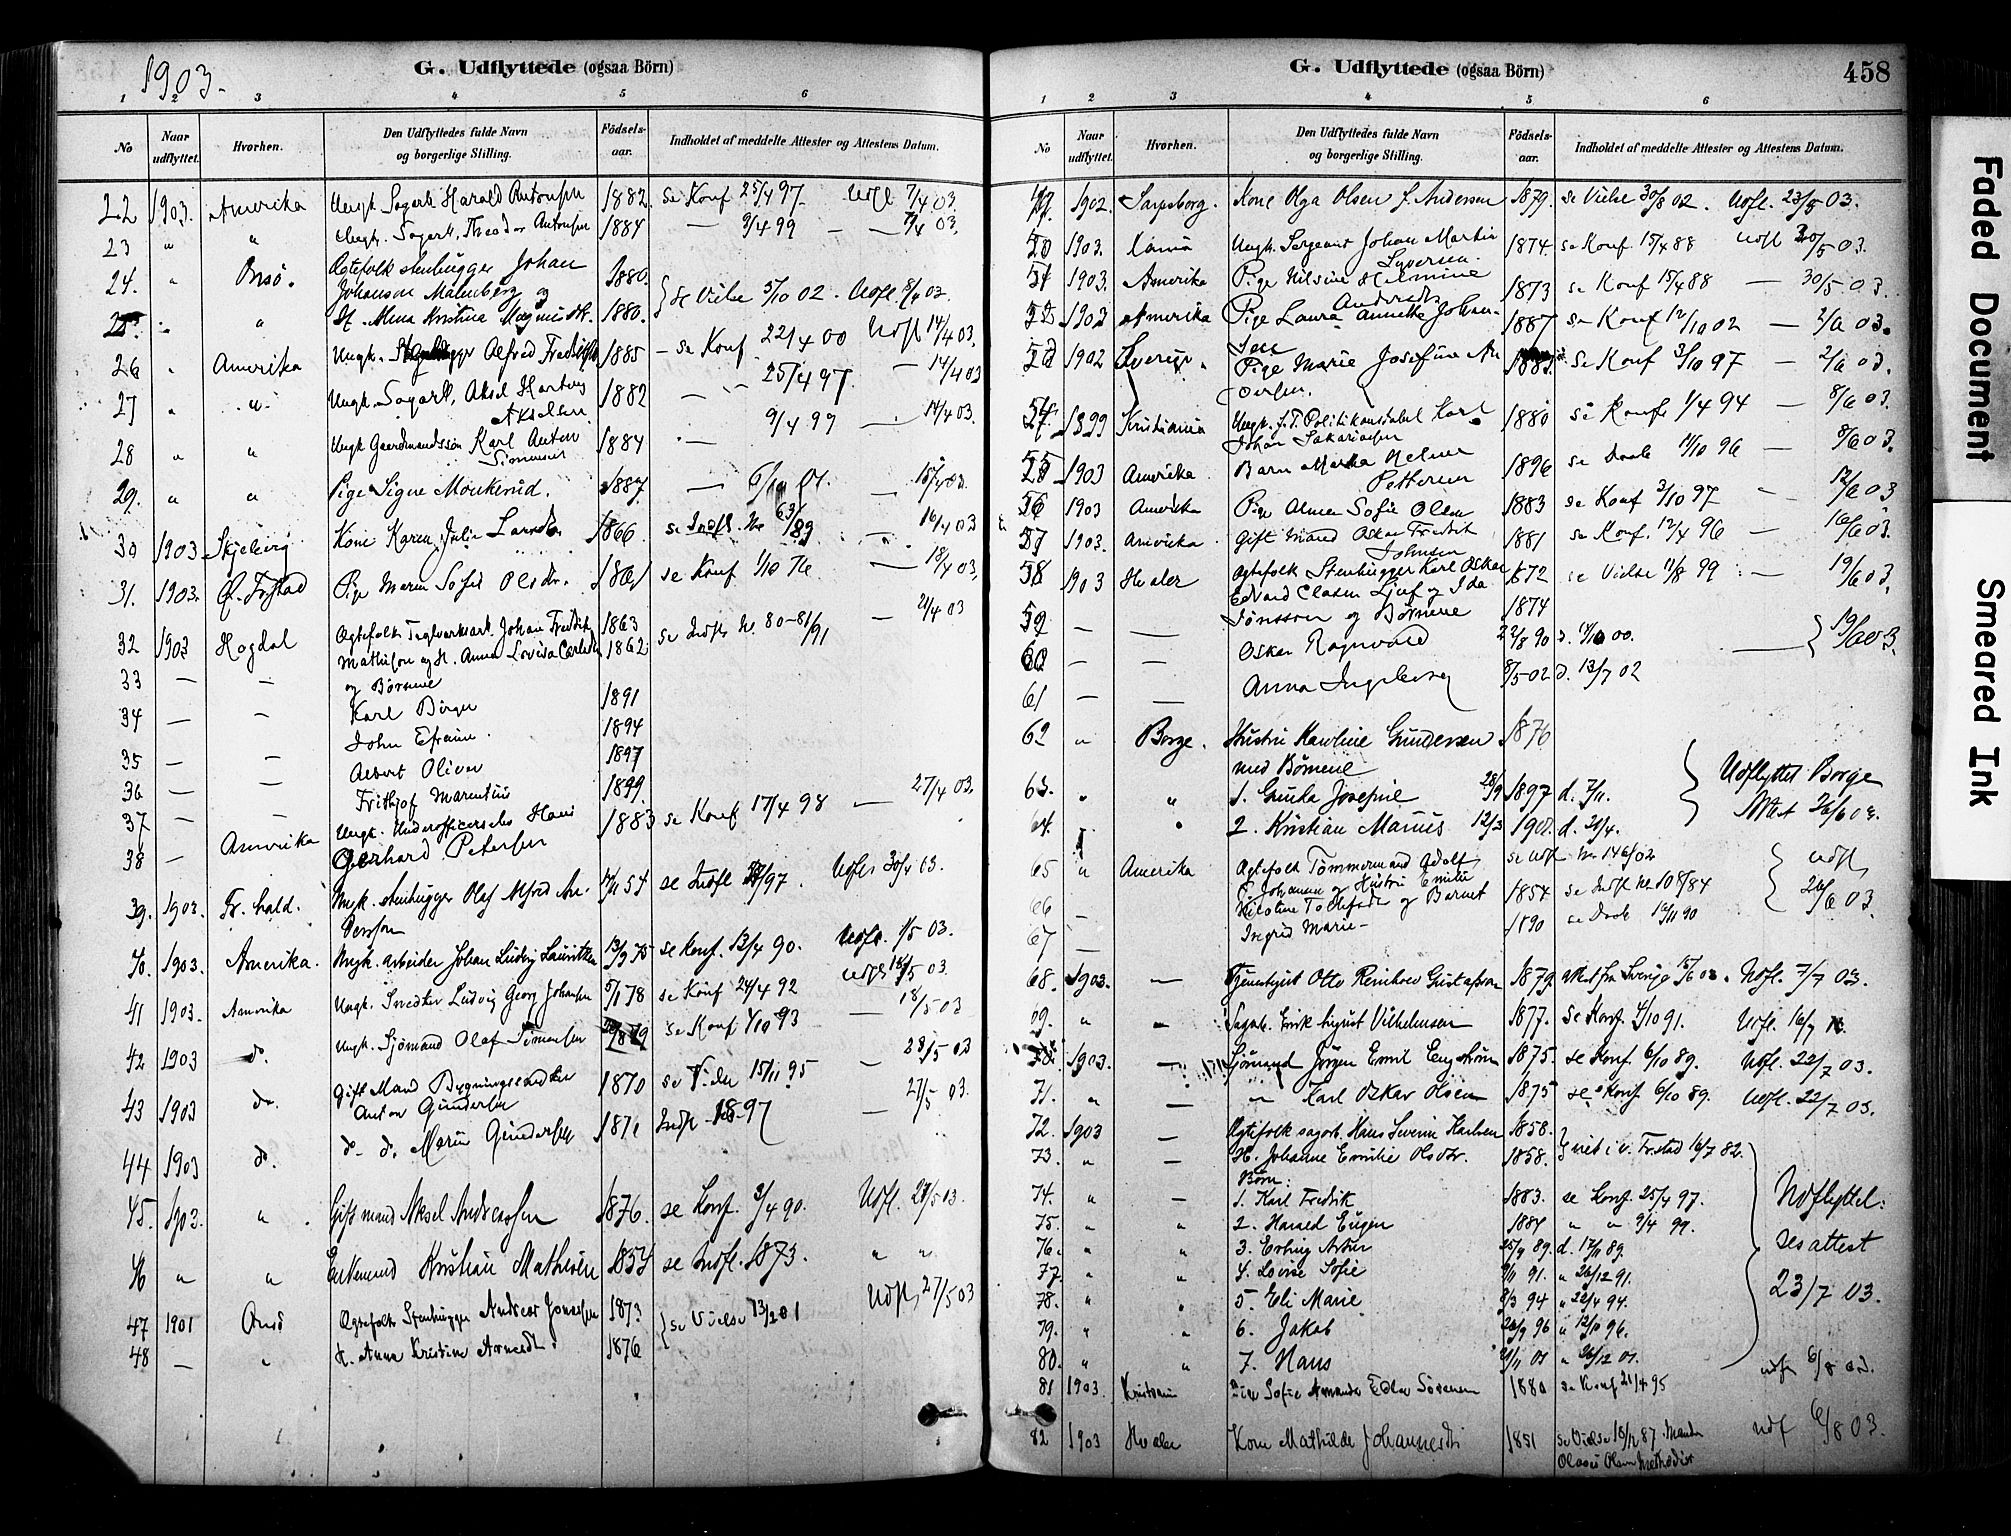 1903.
G. Udflyttede (ogsaa Börn)
1 2 3 4 5 6
No
Naar udflyttet.
Hvorhen.
Den Udflyttedes fulde Navn og borgerlige Stilling.
Födsels-aar.
Indholdet af meddelte Attester og Attestens Datum.
22 1903. Amerika Ungk. Sagarb. Harald Antonsen 1882. se Konf 25/4 97. Udfl 7/4 03.
23 " " Ungk. Sagarb. Theodor Antonsen 1884 — 9/4 99 — — 7/4 03.
24. " Onsö. Ægtefolk stenhugger Johan 1880.
Johanson Malmberg og } se Vielse 5/10 02. Udfl. 8/4 03.
25. " " H. Mina Kristina Magnusdtr. 1880.
26 " Amerika Ungk. Alfred 1885 — se Konf 22/4 00 Udfl 14/4 03.
27 " " Ungk. Sagarb. Aksel Hartvig 1882 — 25/4 97 — 14/4 03
Akselsen
28 " " Ungk Gaardmandssön Karl Anton 1884 — 9/4 99 — 14/4 03.
Simensen
29. " " Pige Signe Monkerud. 1887 — 6/10 01. — 15/4 03.
30 1903 Skjeberg Kone Karen Julie 1866. se Indfl. No 63/89 — 16/4 03
31. 1903. Ö. Frstad Pige Maren Sofie Olsdtr. 1861 se Konf 1/10 76 — 18/4 03.
32 1903 Hogdal Ægtefolk Teglverksarb. Johan Fredrik 1863 se Indfl. No. 80-81/91 — 21/4 03
Mathisen og H. Anna Lovisa 1862
33 — — og Börnene
34 — — Karl Birger 1891
John Efraim. 1894
35 — — Albert Oliver 1897
36 — — Frithjof Marentius 1899.
37 — —
38 — Amerika Ungk. Underofficerselev Hans 1883 se Konf 17/4 98 — 27/4 03.
Gerhard Petersen
39. 1903. Fr.hald. Ungk. stenhugger Olaf Alfred 54 se Indfl /97. Udfl. 30/4 03.
Persson
40. 1903. Amerika. Ungk. arbeider Johan Ludvig Lauritsen 13/9 75 se Konf. 13/4 90. Udfl. 1/5 03.
41 1903. Amerika Ungk. Snedker Ludvig Georg Johansen 5/1 78 se Konf 24/4 92 Udfl 18/5 03
42 1903 do. Ungk. Sjömand Olaf Simensen se Konf 1/10 93 — 18/5 03
43 1903 do. Gift Mand Bygningssnedker 1870 se Vielse 15/11 95 — 28/5 03
Anton Gundersen
44 1903 do. do. do. Marie Gundersen 1871 Indfl 1897 — 27/5 03.
45. 1903. " Gift mand Aksel Andreassen 1876. se Konf. 3/4 90. Udfl. 27/5 03.
46 " " Enkemand Kristian Mathisen 1854 se Indfl. 1873. " "
47 1901 Onsö Ægtefolk Stenhugger Andreas Jonassen 1873. } se Vielse 13/2 01 Udfl, 27/5 03
48 — " H. Anna Kristine Arnesdt. 1876
G. Udflyttede (ogsaa Börn)
458
1 2 3 4 5 6
No
Naar udflyttet.
Hvorhen.
Den Udflyttedes fulde Navn og borgerlige Stilling.
Födsels-aar.
Indholdet af meddelte Attester og Attestens Datum.
49. 1902. Sarpsborg. Kone Olga Olsen f. Andersen 1879. se Vielse 30/8 02. Udfl. 23/5 03.
50 1903. Ungk. Sergeant Johan Martin 1874. se Konf. 15/4 88 Udfl 20/5 03.
Syversen.
51 1903. Amerika Pige Nilsine Helmine 1873 se Konf 15/4 88 — 30/5 03.
Andersdtr
52 1903 Amerika Pige Laura Annette Johan- 1887 se Konf 12/10 02 — 2/6 03.
sen
53 1902 Sverige. Pige Marie Josefine An 1883. se Konf 3/10 97 — 2/6 03.
dersen.
54 1899 Kristiania Ungk. f. T. Politikonstabel Karl 1880 se Konf. 1/4 94 — 8/6 03.
Johan Sakariasen
55 1903 Amerika Barn 1896 se Daab 11/10 96 — 8/6 03.
Pettersen
56 1903 Amerika Pige Alma Sofie Olsen 1883 se Konf 3/10 97 — 12/6 03
57 1903. Amerika Gift Mand Oskar Fredrik 1881 se Konf. 12/4 96 — 16/6 03.
Johnsen
58 1903 Hvaler Ægtefolk Stenhugger Karl Oskar 1872 se Vielse 11/8 99 — 19/6 03.
Edvard Clasen Ljuf og Ida
59 — — Jönsson og Börnene 1874
60 — — Oskar Ragnvald 22/8 90 d. 14/10 00. — } 19/6 03.
61 — — Anna Ingeborg 8/5 02 d. 13/7 02
62 " Borge. Hustru Karoline Gundersen 1876
med Börnene
63. " " 1. Gunda Josefine 28/9 1897 d. 7/11. } Udflyttet Borge
64. " " 2. Kristian Marius 12/3 1901. d. 21/4. Attest 26/6 03.
65 " Amerika Ægtefolk Tömmermand Adolf se Udfl No 146/02 } Udfl
66 — E. Johansen og Hustru Emilie 1854 se Indfl No 108/84 26/6 03.
Nicoline Tollefsdtr og Barnet
67 — Ingrid Marie — 1890 se Daab 16/11 90
68. 1903. — Tjenestgut Otto Reinhold Gustafsson 1879. Attest fra Sverige 15/6 03. Udfl. 7/7 03.
69. " — Sagarb. Erik August Vilhelmsen 1877. se Konf. 4/10 91. Udfl. 16/7 03.
70. 1903. — Sjömand Jörgen Emil Engström 1875 se Konf. 6/10 89. Udfl. 22/7 03.
71. " — " Karl Oskar Olsen 1875 se Konf. 6/10 89. Udfl. 22/7 03.
72. 1903 — Ægtefolk sagarb. Hans Severin Karlsen 1858. } viet i v. Fr.stad 16/7 82.
73. " — H. Johanne Emilie Olsdtr. 1858.
Börn:
74. " — 1. Karl Fredrik 1883. se Konf. 25/4 97. Udflyttet:
75. " " 2. Harald Eugen 1884 " " 9/4 99.
76. " " 3. Erling Artur 25/9 89. d. 17/11 89. ses attest
77. " " 4. Lovise Sofie 91. " 26/12 91.
78. " " 5. Eli Marie 8/3 94 " 22/4 94. 23/7 03.
79. " " 6. Jakob 20/9 96 " 12/10 96.
80. " " 7. Hans 2/11 01 " 26/12 01.
81 1903. Kristiania Pige Sofie Amanda Edler Sörensen 1880 se Konf 21/4 95 udfl 6/8 03.
82 1903 Hvaler Kone Mathilde Johannesdt. 1851 se Vielse 18/12 87. Manden udf 6/8 03.
Olaves Olsen Methodist
Faded Document
Smeared Ink